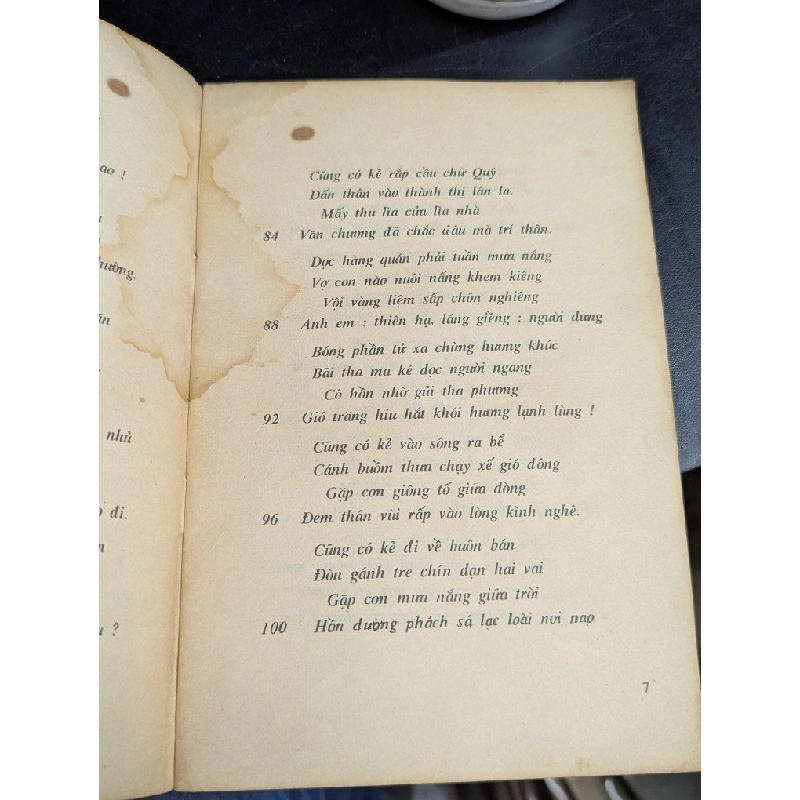 ao !
hường.
nhủ
đi.
?
Cũng có kẻ rắp cầu chữ Quý
Dấn thân vào thành thị lân la.
Mấy thu lìa cửa lìa nhà
84 Văn chương đã chắc đâu mà trí thân.
Dọc hàng quán phải tuần mưa nắng
Vợ con nào nuôi nấng khem kiêng
Vội vàng liệm sấp chôn nghiêng
88 Anh em : thiên hạ, láng giềng : người dưng
Bóng phần tử xa chừng hương khúc
Bãi tha ma kẻ dọc người ngang
Cô hồn nhờ gửi tha phương
92 Gió trăng hiu hắt khói hương lạnh lùng !
Cũng có kẻ vào sông ra bể
Cánh buồm thưa chạy xế gió đông
Gặp cơn giông tố giữa dòng
96 Đem thân vùi rấp vào lòng kình nghê.
Cũng có kẻ đi về buôn bán
Đòn gánh tre chín dạn hai vai
Gặp con mưa nắng giữa trời
100 Hồn đường phách sá lạc loài nơi nao
7